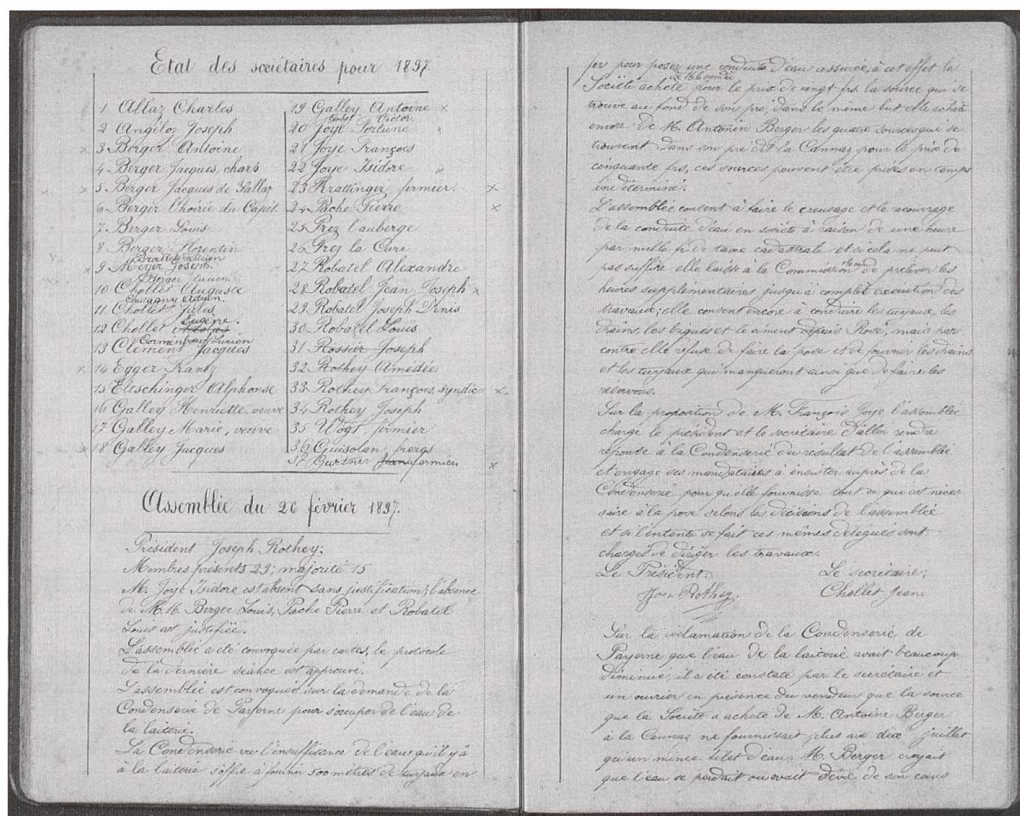 Etat des sociétaires pour 1897.
1 Allaz Charles
2 Angéloz Joseph
3 Berger Antoine
4 Berger Jacques, chars
5 Berger Jacques de Sallaz
6 Berger du Capit.
7 Berger Louis
8 Berger Florentin
9 Meyer Joseph
10 Chollet Auguste
11 Chollet
12 Chollet Eugène.
13 Clément Jacques
14 Egger Frantz
15 Eltschinger Alphonse
16 Galley Henriette, veuve
17 Galley Marie, veuve
18 Galley Jacques
19 Galley Antoine
Victor
20 Joye Fortuné
21 Joye François
22 Joye Isidore
23 Krattinger fermier
24 Pache Pierre
25 Prez l'auberge
26 Prez la Cure
27 Robatel Alexandre
28 Robatel Jean Joseph
29 Robatel Joseph Denis
30 Robatel Louis
31 Rossier Joseph
32 Rothey Amédée
33 Rothey François, syndic
34 Rothey Joseph
35 Vogt fermier
36 Guisolan
37 fermier
Assemblée du 20 février 1897.
Président Joseph Rothey;
Membres présents 29; majorité 15
M. Joye Isidore est absent sans justification; l'absence
de M.M. Berger Louis, Pache Pierre et Robatel
Louis est justifiée.
L'assemblée a été convoquée par cartes, le protocole
de la dernière séance est approuvé.
L'assemblée est convoquée sur la demande de la
Condenserie de Payerne pour s'occuper de l'eau de
la laiterie.
La Condenserie vu l'insuffisance de l'eau qu'il y a
à la laiterie s'offre à fournir 500 mètres de tuyaux en
fer pour poser une conduite d'eau assurée, à cet effet la
Société achète pour le prix de vingt frs la source qui se
trouve au fond de son pré, dans le même but elle achète
encore de M. Antonin Berger les quatre sources qui se
trouvent dans son pré dit la Cannaz pour le prix de
cinquante frs, ces sources pouvant être prises en temps
indéterminé.
L'assemblée consent à faire le creusage et le couvrage
de la conduite d'eau en société à raison de une heure
par mille fr. de taxe cadastrale et si cela ne peut
pas suffire elle laisse à la Commission de prélever les
heures supplémentaires jusqu'à complète exécution des
travaux; elle consent encore à conduire les tuyaux, les
drains, les briques et le ciment depuis Rosé, mais par
contre elle refuse de faire la pose et de fournir les drains
et les tuyaux qui manqueront ainsi que de faire les
réservoirs.
Sur la proposition de M. François Joye l'assemblée
charge le président et le secrétaire d'aller rendre
réponse à la Condenserie du résultat de l'assemblée
et engage ses mandataires à insister auprès de la
Condenserie, pour qu'elle fournisse tout ce qui est néces-
saire à la pose selon les décisions de l'assemblée
et si l'entente se fait ces mêmes délégués sont
chargés de diriger les travaux.
Le Président: Le secrétaire:
Jos. Rothey. Chollet Jean
Sur la réclamation de la Condenserie de
Payerne que l'eau de la laiterie avait beaucoup
diminué, il a été constaté par le secrétaire et
un ouvrier en présence du vendeur que la source
que la Société a acheté de M. Antoine Berger
à la Cannaz ne fournissait plus au dix juillet
qu'un mince filet d'eau; M. Berger croyait
que l'eau se perdait ou avait dévié de son cours